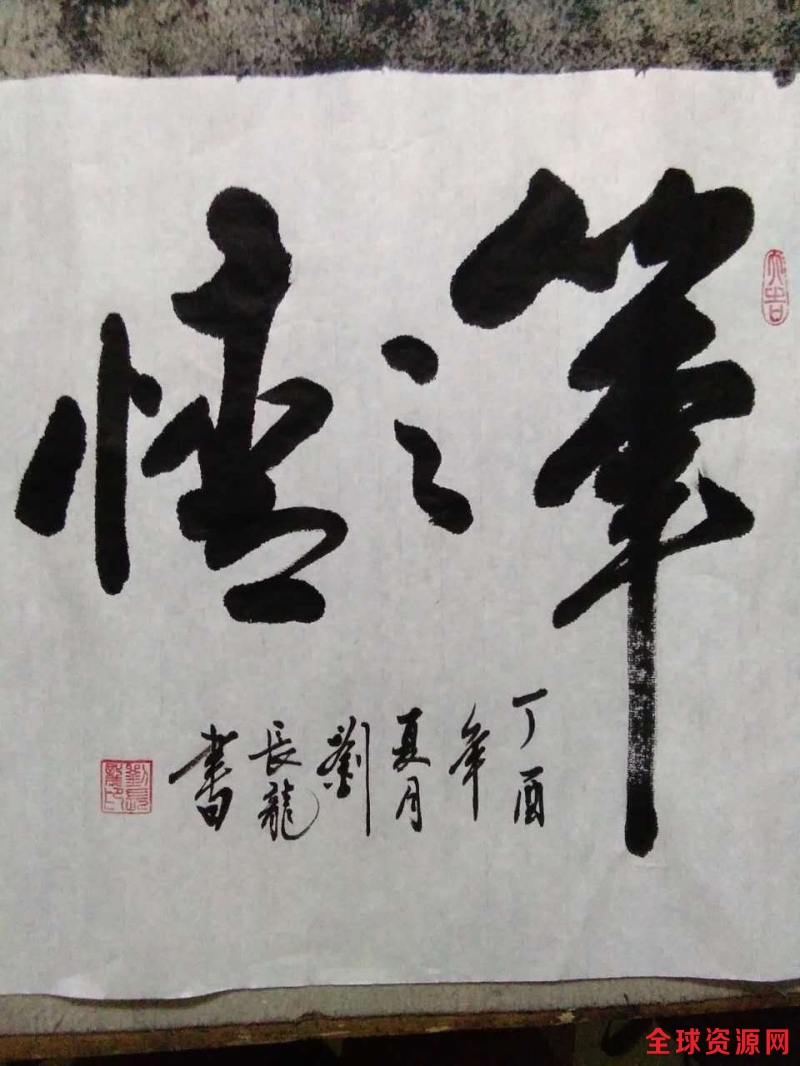 筆之情
丁酉年夏月劉長龍書
劉長龍印
全球资源网